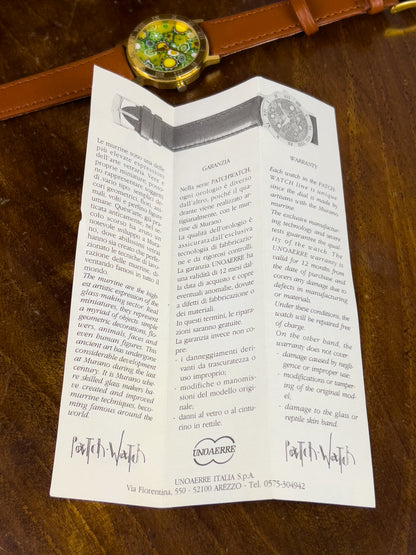 Le murrine sono una delle
più elevate espressioni
dell'arte vetraria. Vere e
proprie miniature, posso-
no rappresentare soggetti
di vario tipo, semplici de-
cori geometrici, fiori, ani-
mali, volti e perfino figure
umane. Quest'arte, già pra-
ticata anticamente, nel se-
colo scorso ha avuto un
notevole sviluppo a Mura-
no, dove abilissimi vetrai
hanno sia creato che perfe-
zionato le tecniche di lavo-
razione delle murrine, di-
ventando famosi in tutto il
mondo.
The murrine are the high-
est artistic expression of the
glass-making sector. Real
miniatures, they represent
a myriad of objects: simple
geometric decorations, flo-
wers, animals, faces and
even human figures. This
ancient art has undergone
considerable development
at Murano during the last
century. It is Murano whe-
re skilled glass makers ha-
ve created and improved
murrine techniques, beco-
ming famous around the
world.
PaTCH-WaTCH
GARANZIA
Nella serie PATCHWATCH,
ogni orologio è diverso
dall'altro, poiché il qua-
drante viene realizzato ar-
tigianalmente, con le mur-
rine di Murano.
La qualità dell'orologio è
assicurata dall'esclusiva
tecnologia di fabbricazio-
ne e da rigorosi controlli.
La garanzia UNOAERRE ha
una validità di 12 mesi dal-
la data di acquisto e copre
eventuali anomalie, dovute
a difetti di fabbricazione o
dei materiali.
In questi termini, le ripara-
zioni saranno gratuite.
La garanzia invece non co-
pre:
- i danneggiamenti deri-
vanti da trascuratezza o
uso improprio;
- modifiche o manomis-
sioni del modello origi-
nale;
- danni al vetro o al cintu-
rino in rettile.
UNOAERRE
UNOAERRE ITALIA S.p.A.
Via Fiorentina, 550 - 52100 AREZZO - Tel. 0575-304942
WARRANTY
Each watch in the PATCH-
WATCH line is unique
since the dial is made by
artisans with the Murano
murrine.
The exclusive manufactur-
ing technology and severe
tests guarantee the qual-
ity of the watch. The
UNOAERRE warranty is
valid for 12 months from
the date of purchase and
covers any damage due to
defects in manufacturing
or materials.
Under these conditions, the
watch will be repaired free
of charge.
On the other hand, the
warranty does not cover:
- damage caused by negli-
gence or improper use;
- modifications or tamper-
ing of the original mod-
el;
- damage to the glass or
reptile skin band.
PaTCH-WaTCH